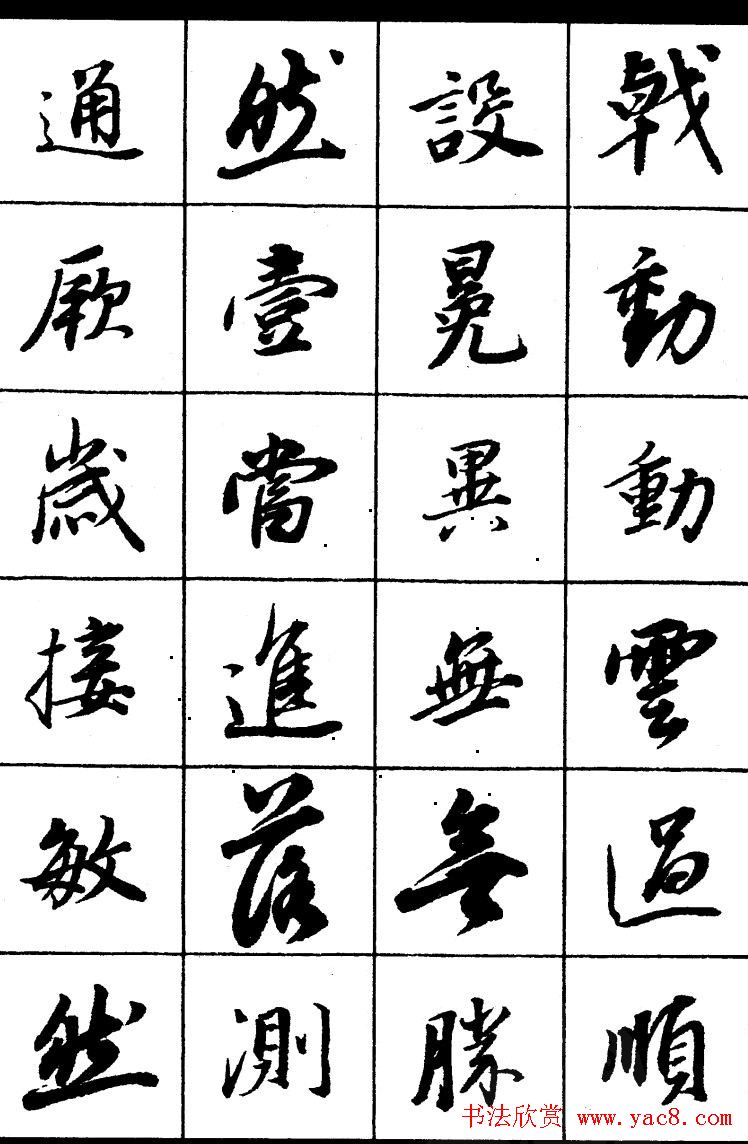 戟動動雲過順
設冕異無無勝
然壹當進落測
通厥歲接敏然
书法欣赏 www.yac8.com